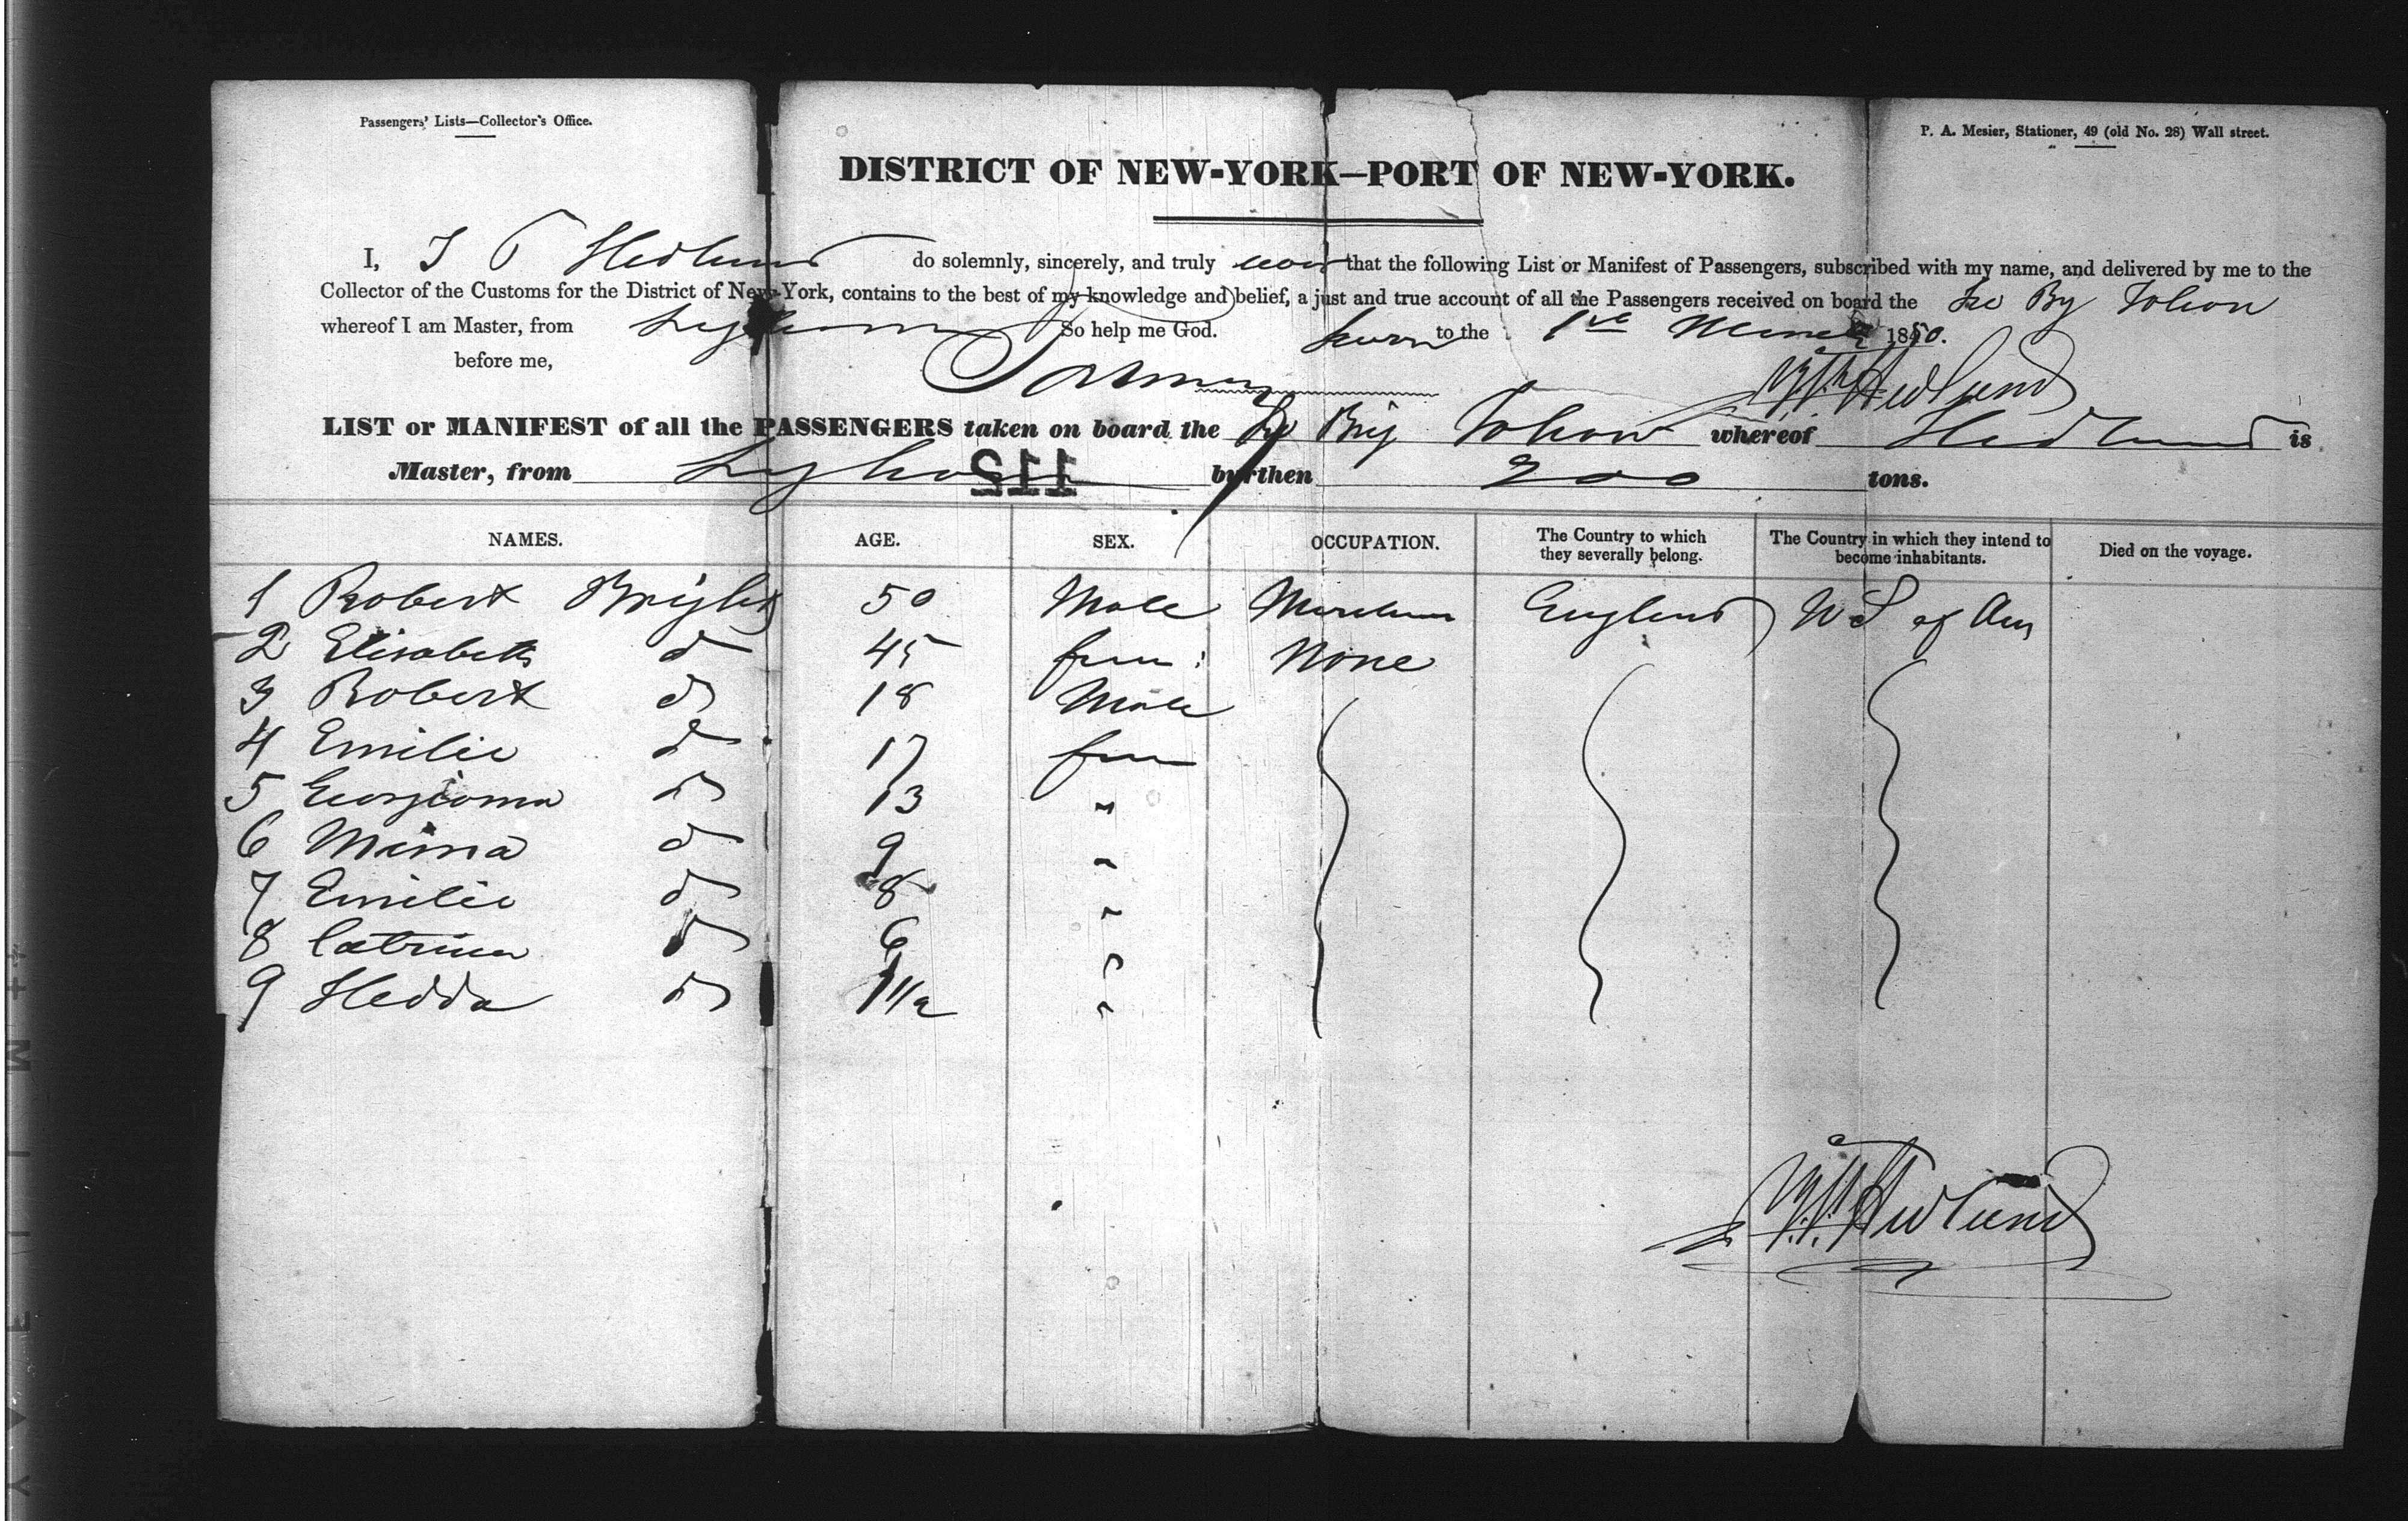 Passengers' Lists—Collector's Office.
P. A. Mesier, Stationer, 49 (old No. 28) Wall street.
DISTRICT OF NEW-YORK—PORT OF NEW-YORK.
I, Hedlund do solemnly, sincerely, and truly that the following List or Manifest of Passengers, subscribed with my name, and delivered by me to the
Collector of the Customs for the District of New-York, contains to the best of my knowledge and belief, a just and true account of all the Passengers received on board the
whereof I am Master, from So help me God. to the 1st 1850.
before me,
Hedlund
LIST or MANIFEST of all the PASSENGERS taken on board the Brig whereof Hedlund is
Master, from 112 burthen 200 tons.
NAMES. AGE. SEX. OCCUPATION. The Country to which they severally belong. The Country in which they intend to become inhabitants. Died on the voyage.
1 Robert Bright 50 Male England US of Am
2 Elisabeth d 45 fem: None
3 Robert do 18 Male
4 Emilie d 17 fem
5 do 13 "
6 Mina d 9 "
7 Emilie do 8 "
8 Catrina do 6 "
9 Hedda do 1 1/2 "
Hedlund